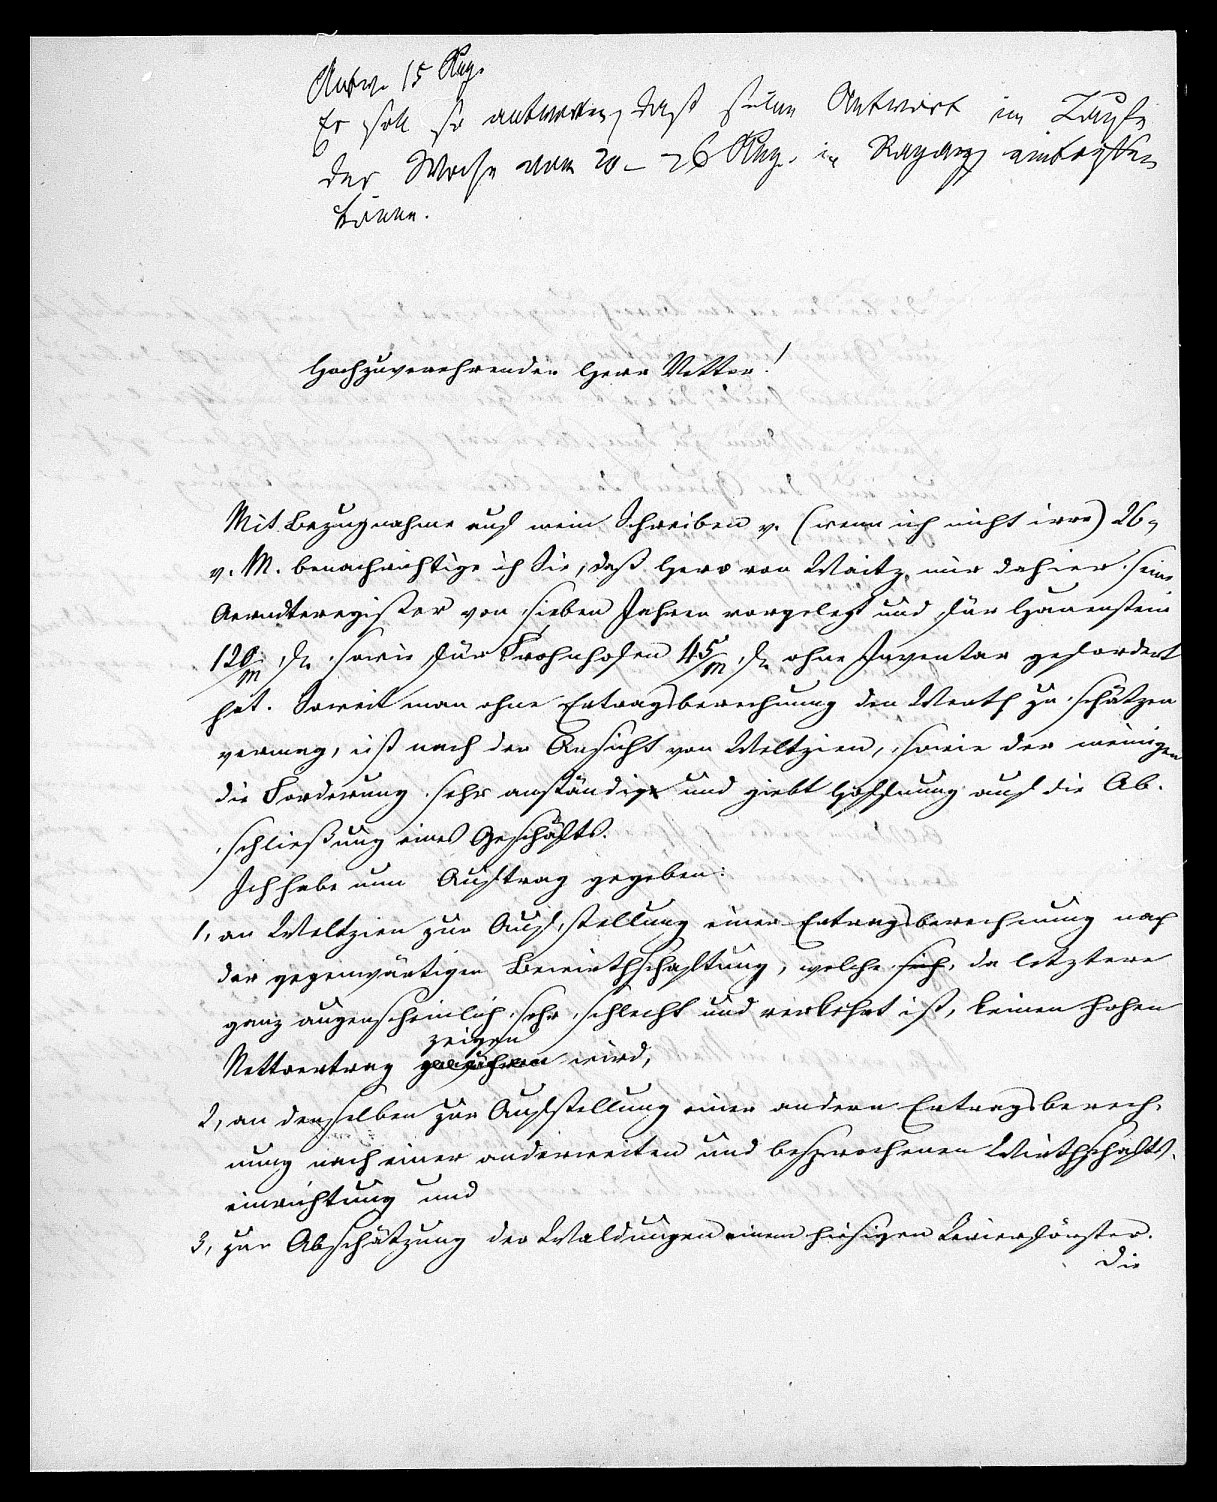 Antw. 15 Aug.
Er soll so antworten, daß seine Antwort im Laufe
der Woche vom 20 – 26 Aug. in Ragaz eintreffen
könne.
Hochzuverehrender Herr Vetter!
Mit Bezugnahme auf mein Schreiben v. (wenn ich nicht irre) 26,
v. M. benachrichtige ich Sie, daß Herr von Waitz mir dahier seine
Aerndteregister von sieben Jahren vorgelegt und für Hauenstein
120/m fl. sowie für Frohnhofen 45/m fl. ohne Inventar gefordert
hat. Soweit man ohne Ertragsberechnung den Werth zu schätzen
vermag, ist nach der Ansicht von Weltzien, sowie der meinigen
die Forderung sehr anständig und giebt Hoffnung auf die Ab-
schließung eines Geschäfts.
Ich habe nun Auftrag gegeben:
1, an Weltzien zur Aufstellung einer Ertragsberechnung nach
der gegenwärtigen Bewirthschaftung, welche sich, da letztere
ganz augenscheinlich sehr schlecht und verkehrt ist, keinen hohen
zeigen
Nettoertrag wird,
2, an denselben zur Aufstellung einer andern Ertragsberech-
nung nach einer anderweiten und besprochenen Wirthschafts-
einrichtung und
3, zur Abschätzung der Waldungen einem hiesigen Revierförster.
Die